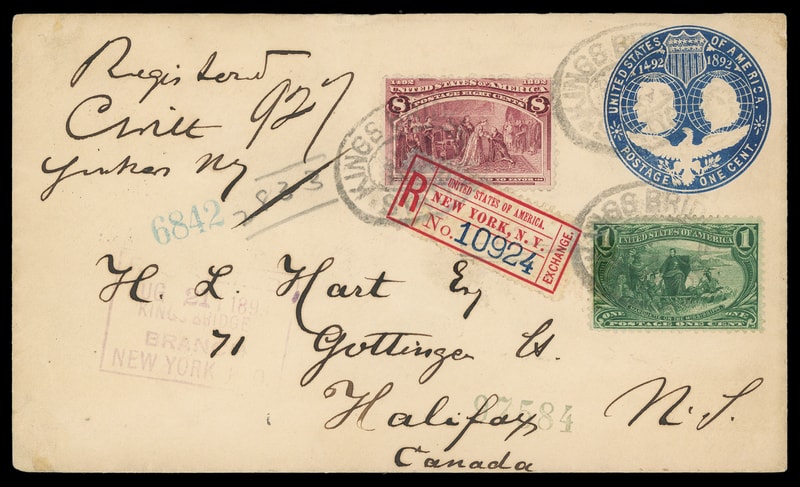 Registered
927
Yonkers NY
2833
6842
1492 1892
UNITED STATES OF AMERICA
POSTAGE EIGHT CENTS
8 8
KINGS
UNITED STATES OF AMERICA.
1492 1892
POSTAGE ONE CENT.
KINGS BRI
R
UNITED STATES OF AMERICA.
NEW YORK, N.Y.
No. 10924
EXCHANGE.
GS BRI
1 1
UNITED STATES OF AMERICA
ONE ONE
POSTAGE ONE CENT
H. L. Hart Esq
71 Gottingen St.
Halifax N.S.
Canada
37584
AUG 21 189
KINGSBRIDGE
BRANCH
NEW YORK P.O.